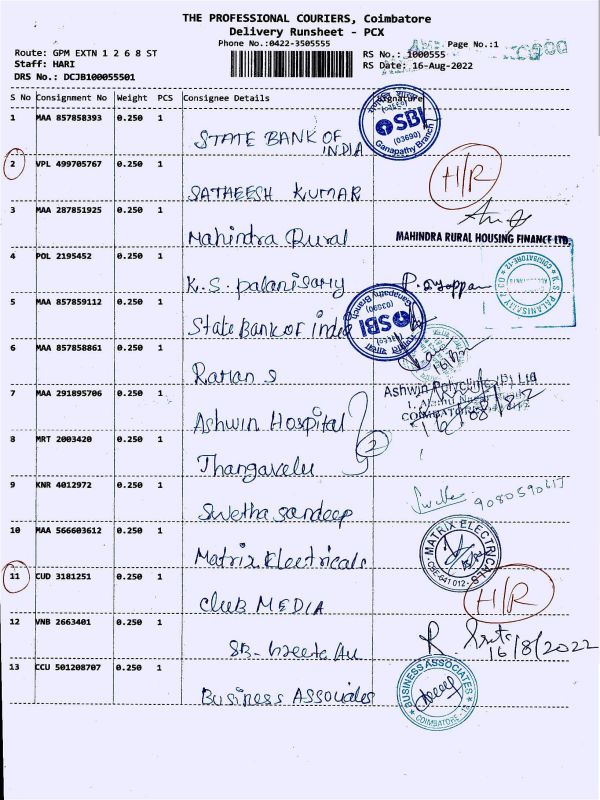 THE PROFESSIONAL COURIERS, Coimbatore
Delivery Runsheet - PCX
Phone No.:0422-3505555
Page No.:1
Route: GPM EXTN 1 2 6 8 ST
RS No.: 1000555
Staff: HARI
RS Date: 16-Aug-2022
DRS No.: DCJB100055501
S No Consignment No Weight PCS Consignee Details Signature
1 MAA 857858393 0.250 1
STATE BANK OF INDIA
SBI
(03690)
Ganapathy Branch
2 VPL 499705767 0.250 1
SATHEESH KUMAR
H/R
3 MAA 287851925 0.250 1
Mahindra Rural
MAHINDRA RURAL HOUSING FINANCE LTD.
4 POL 2195452 0.250 1
K.S. Palanisamy
K.S. PALANISAMY
COIMBATORE-12
5 MAA 857859112 0.250 1
State Bank of India
SBI
(03690)
Ganapathy Branch
6 MAA 857858861 0.250 1
Ratan S
7 MAA 291895706 0.250 1
Ashwin Hospital
Ashwin Polyclinic (P) Ltd
COIMBATORE
16/08/22
8 MRT 2003420 0.250 1
Thangavelu
2
9 KNR 4012972 0.250 1
Swetha Sandeep
Swetha
10 MAA 566603612 0.250 1
Matrix Electricals
MATRIX ELECTRICALS
CBE-641 012
11 CUD 3181251 0.250 1
Club MEDIA
H/R
12 VNB 2663401 0.250 1
16/8/2022
13 CCU 501208707 0.250 1
Business Associates
BUSINESS ASSOCIATES
COIMBATORE - 12